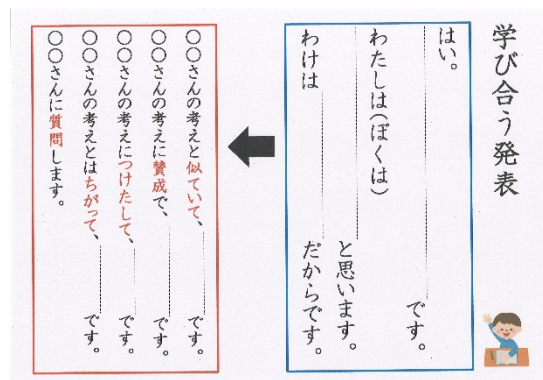 学び合う発表
はい。
です。
わたしは(ぼくは)
と思います。
わけは
だからです。
○○さんの考えと似ていて、です。
○○さんの考えに賛成で、です。
○○さんの考えにつけたして、です。
○○さんの考えとはちがって、です。
○○さんに質問します。